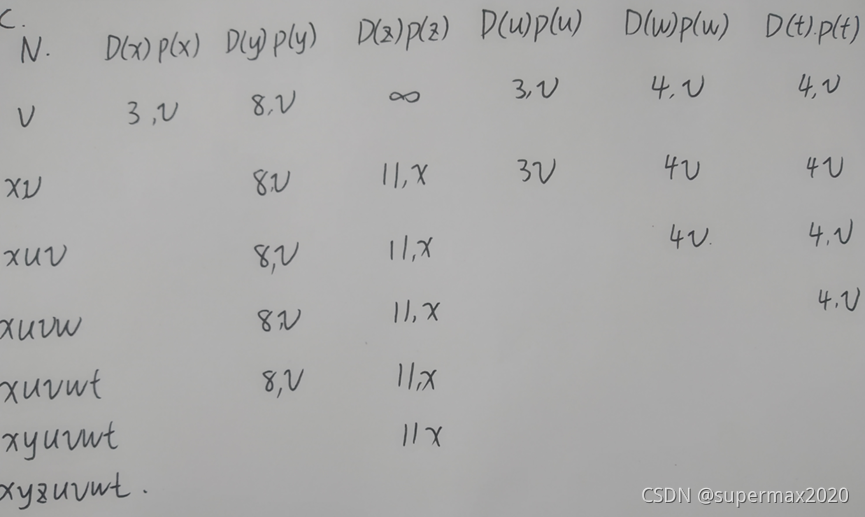 C.
N. D(x)p(x) D(y)p(y) D(z)p(z) D(u)p(u) D(w)p(w) D(t).p(t)
v 3,v 8,v ∞ 3,v 4,v 4,v
xv 8v 11,x 3v 4v 4v
xuv 8,v 11,x 4v. 4,v
xuvw 8v 11,x 4,v
xuvwt 8,v 11,x
xyuvwt 11x
xyzuvwt.
CSDN @supermax2020